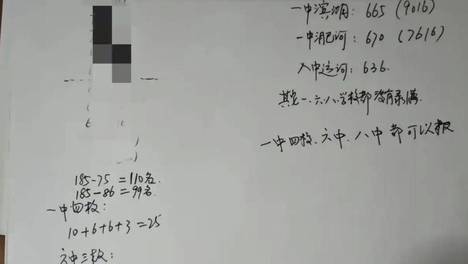 一中滨湖：665（9016）
一中淝河：670（7616）
八中运河：636.
其它一、六、八学校都没有录满.
一中四校、六中、八中都可以报
185-75 = 110名.
185-86 = 99名.
一中四校：
10+6+6+3=25
六中三校：